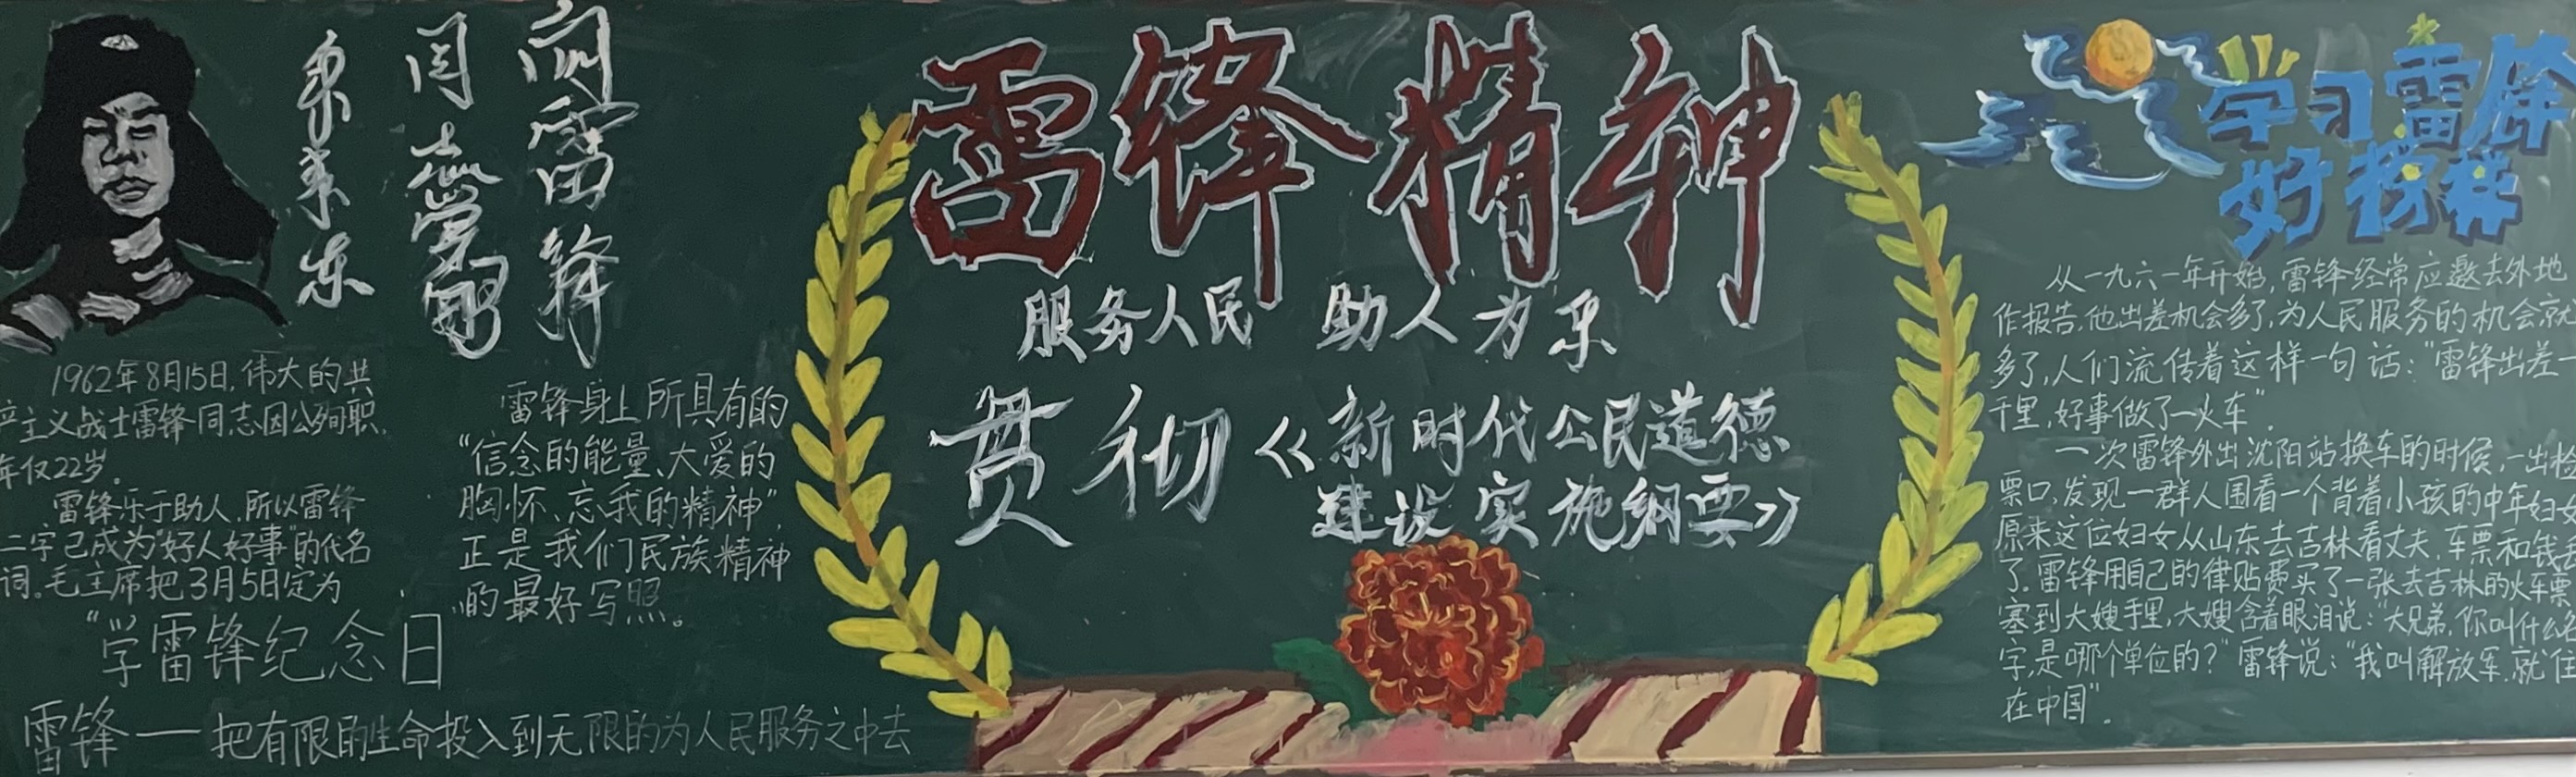 向雷锋
同志学习
毛泽东
1962年8月15日,伟大的共
产主义战士雷锋同志因公殉职,
年仅22岁.
雷锋乐于助人,所以雷锋
二字已成为"好人好事"的代名
词.毛主席把3月5日定为
"学雷锋纪念日
雷锋身上所具有的
"信念的能量、大爱的
胸怀、忘我的精神",
正是我们民族精神
的最好写照。
雷锋——把有限的生命投入到无限的为人民服务之中去
雷锋精神
服务人民 助人为乐
贯彻《新时代公民道德
建设实施纲要》
学习雷锋
好榜样
从一九六一年开始,雷锋经常应邀去外地
作报告,他出差机会多了,为人民服务的机会就
多了,人们流传着这样一句话:"雷锋出差一
千里,好事做了一火车".
一次雷锋外出沈阳站换车的时候,一出检
票口,发现一群人围看一个背着小孩的中年妇女
原来这位妇女从山东去吉林看丈夫,车票和钱丢
了.雷锋用自己的津贴费买了一张去吉林的火车票
塞到大嫂手里,大嫂含着眼泪说:"大兄弟,你叫什么名
字,是哪个单位的?"雷锋说:"我叫解放军,就住
在中国".